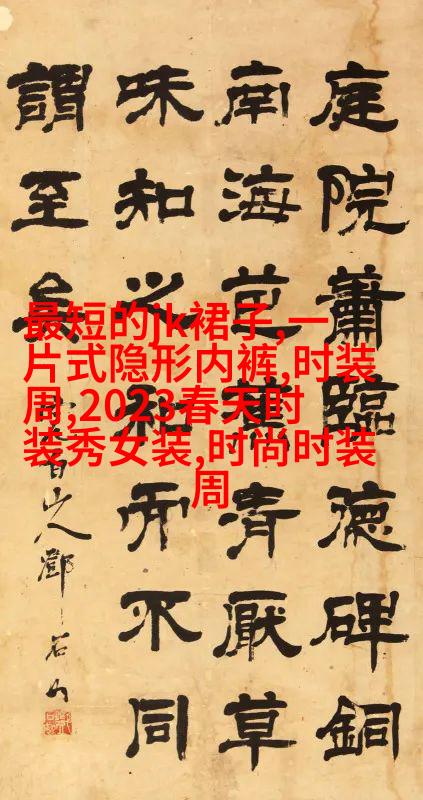 庭院蕭臨德碑銅
南海清厭草
味知之和而不同
謂至矣
山人鄧石如
最短的jk裙子,一
片式隐形内裤,时装
周,2023春天时
装秀女装,时尚时装
周